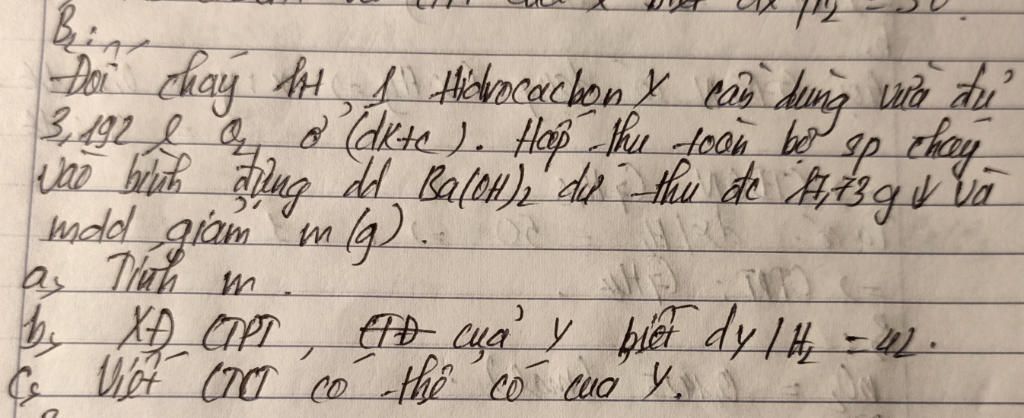 B₂:
Đốt cháy ht 1 Hidrocacbon Y cần dùng vừa đủ
3,192 l O₂ ở (đktc). Hấp thu toàn bộ sp cháy
vào bình đựng dd Ba(OH)₂ dư thu đc 17,73g ↓ và
mdd giảm m (g).
a, Tính m.
b, XĐ CTPT, của Y biết dy/H₂ = 42.
c, Viết CTCT có thể có của Y.